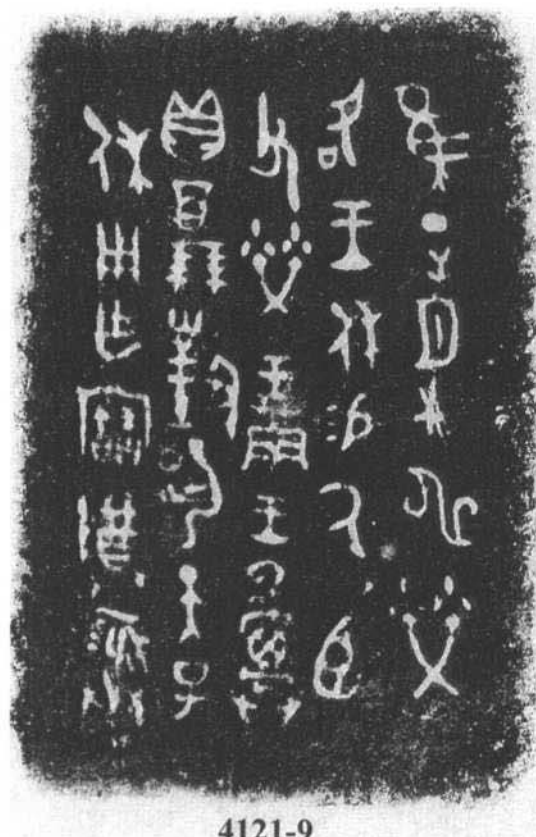 隹正月甲申榮
各王休易厥臣
父榮瓚王祼
貝百朋對揚天子
休用乍寶尊彝
4121-9